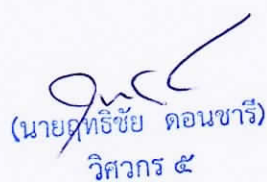 (นายฤทธิชัย ดอนชารี)
วิศวกร ๕